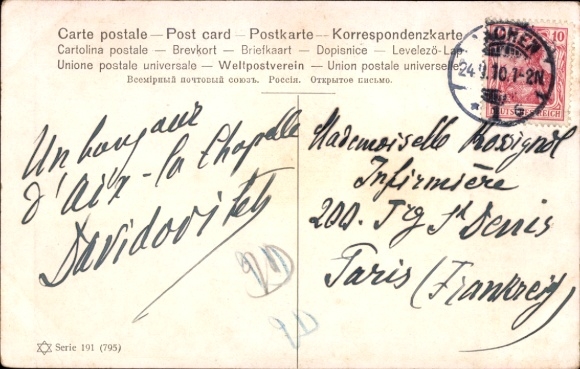 Carte postale — Post card — Postkarte — Korrespondenzkarte
Cartolina postale — Brevkort — Briefkaart — Dopisnice — Levelező-Lap
Unione postale universale — Weltpostverein — Union postale universelle
Всемірный почтовый союзъ. Россія. Открытое письмо.
CHEN
24.9.10.1-2N
10
DEUTSCHES REICH
Un bonjour
d'Aix-la Chapelle
Davidovitch
Mademoiselle Rossignol
Infirmière
200. Fg St Denis
Paris (Frankreich)
Serie 191 (795)